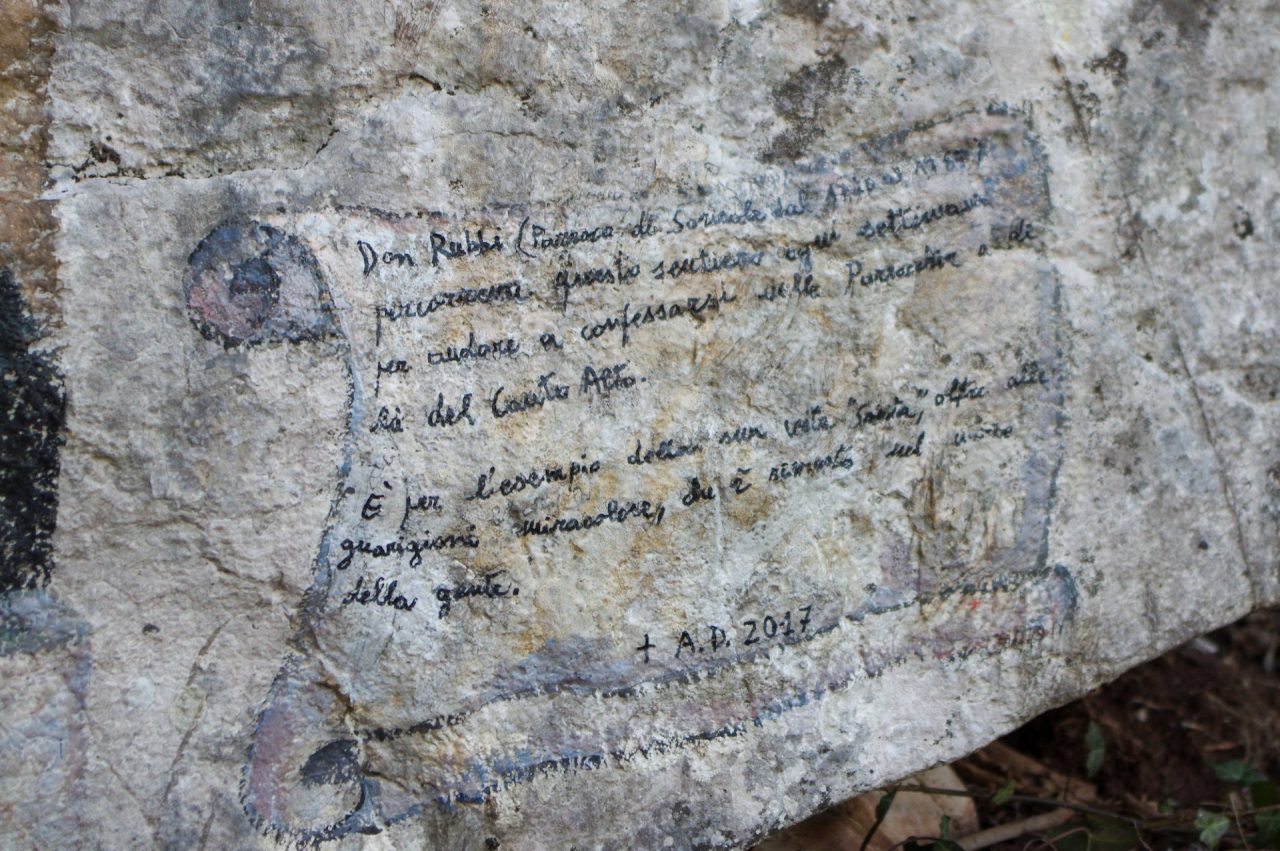 Don Rubbi (Parroco di Soricole dal
percorreva questo sentiero ogni settimana
per andare a confessarsi nella Parrocchia a di
là del Canto Alto.
È per l'esempio della sua vita "Santa," oltre alle
guarigioni miracolose, che è rimasto nel cuore
della gente.
+ A.D. 2017